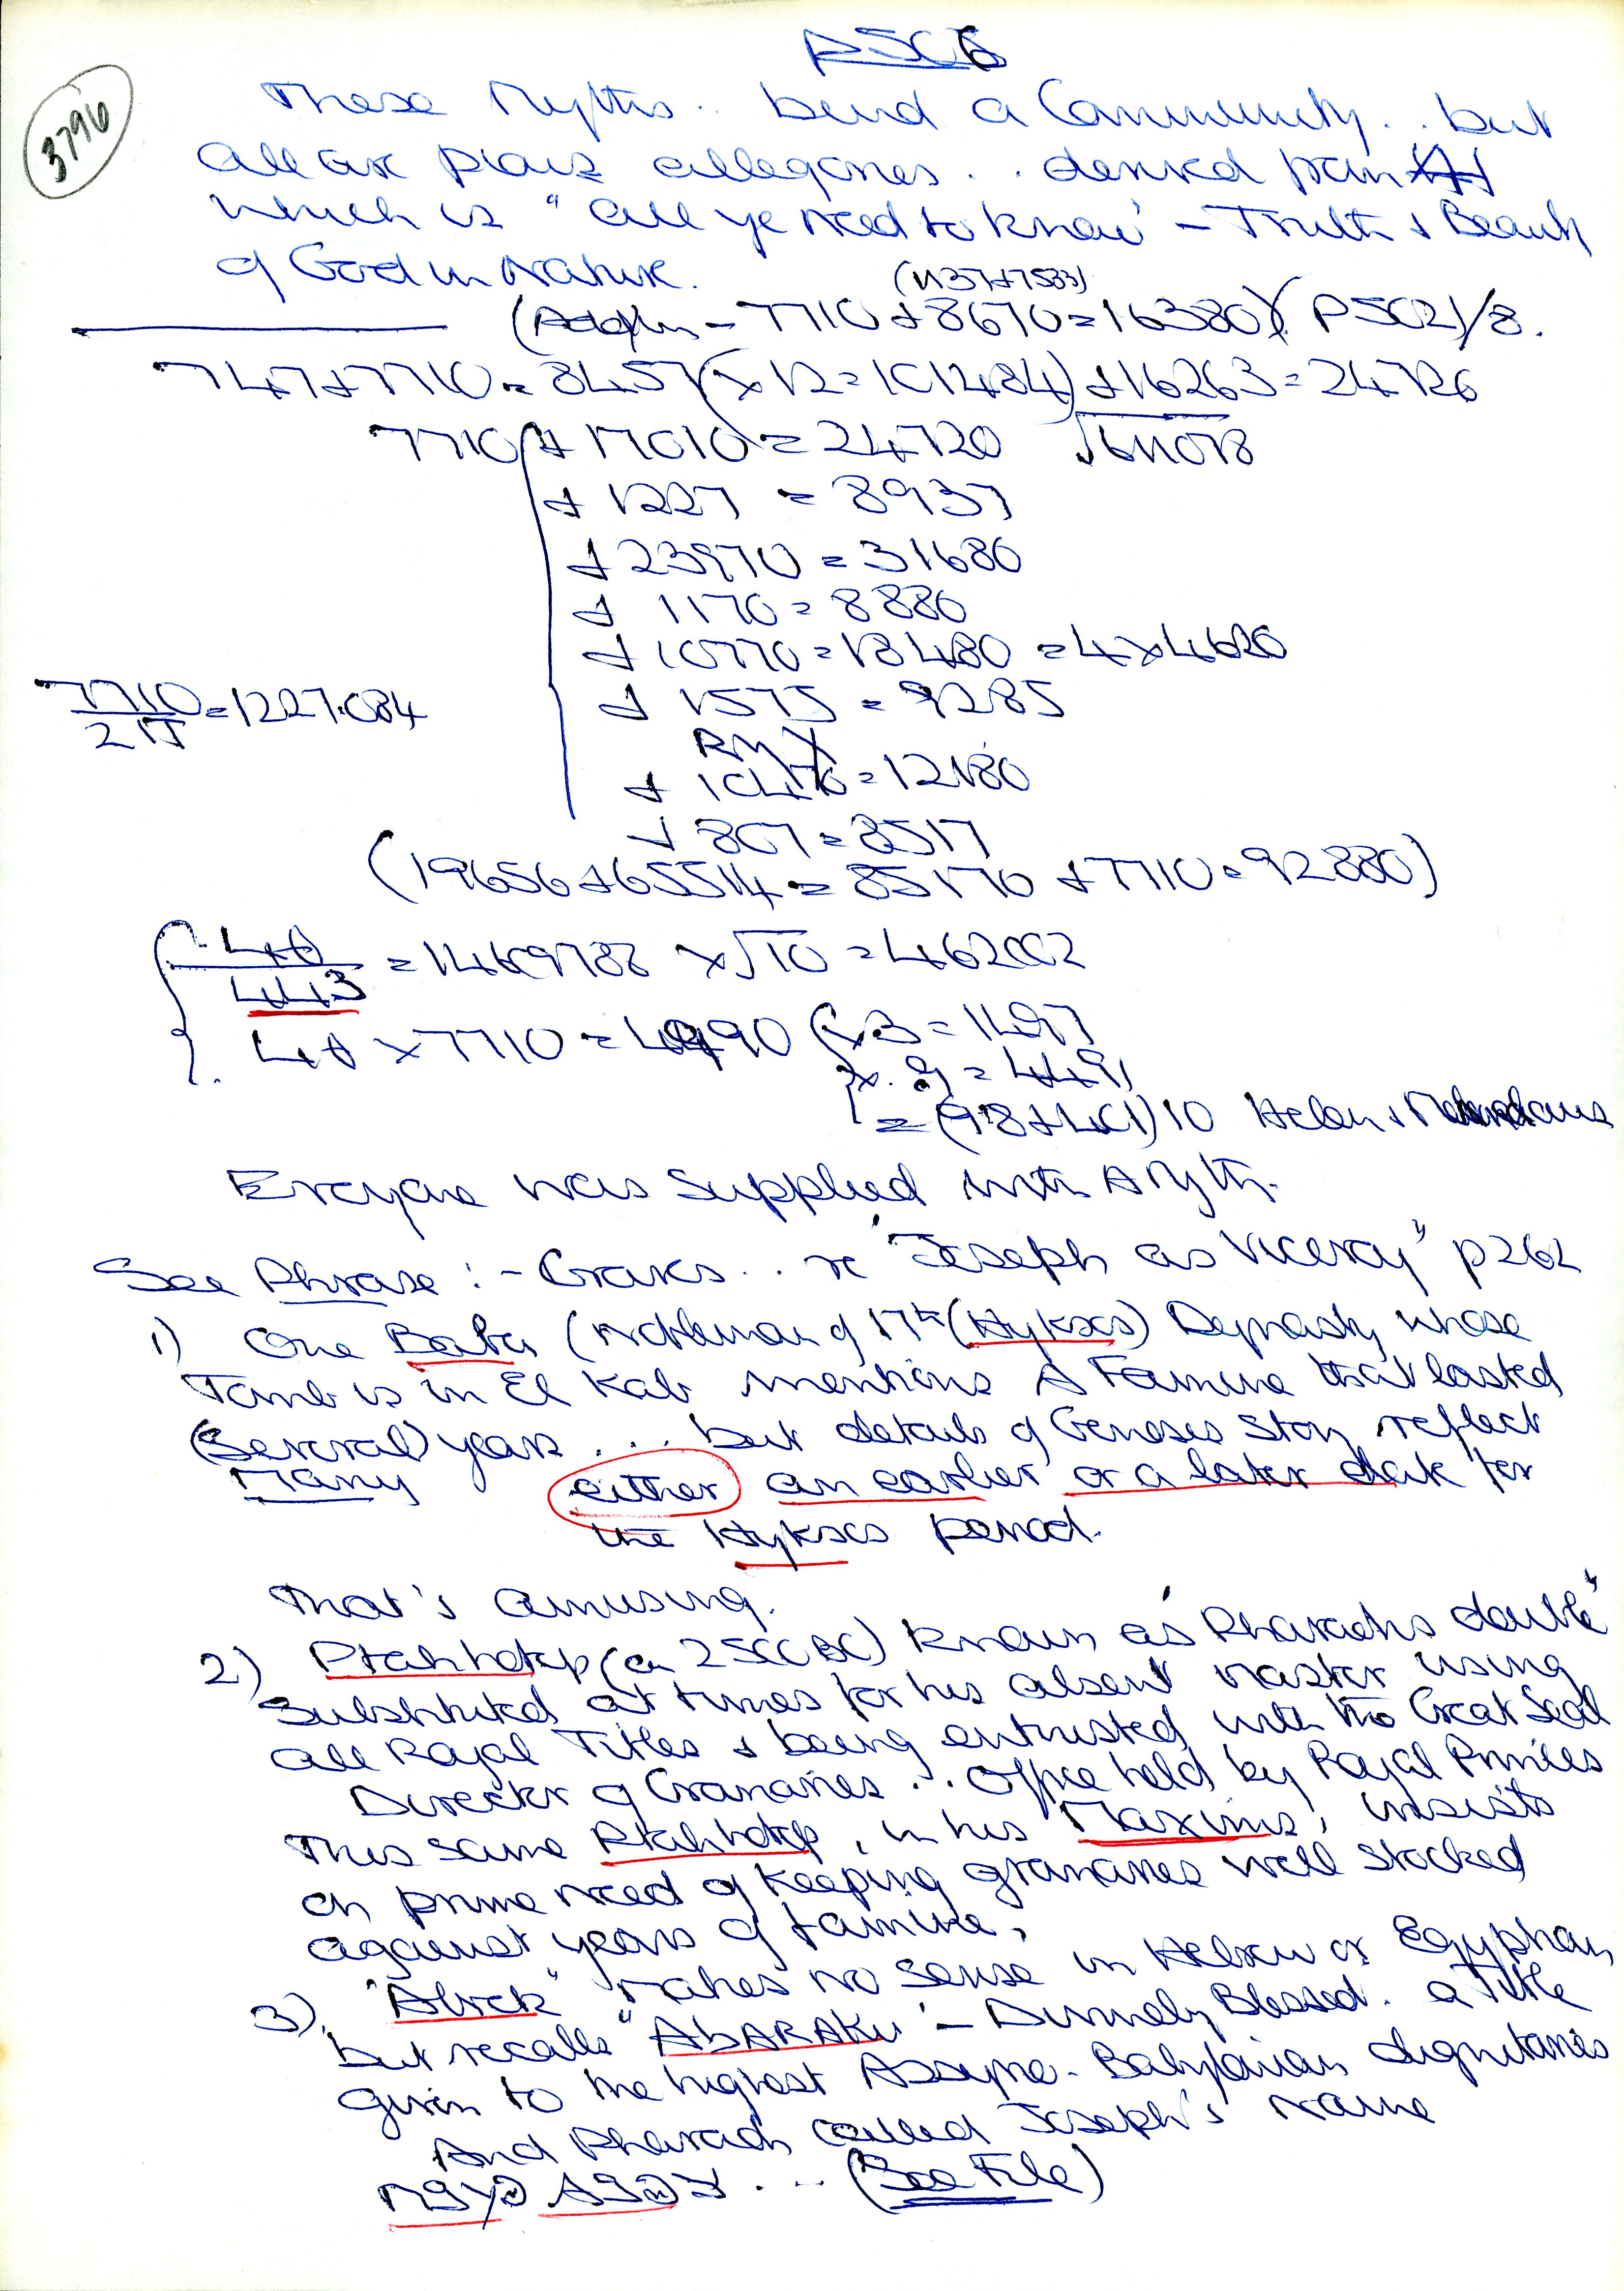 p5006
3796
These Myths.. bend a Community... but
all are plays allegories.. derived from
which is "all ye need to know" - Truth & Beauty
of God in Nature.
(1137+7533)
- 7710 + 8670 = 16380) (P5021/8.
747+7710 = 8457 (x 12 = 101484) + 16263 = 24720
7710 + 17010 = 24720
+ 1227 = 8937
+ 23970 = 31680
+ 1170 = 8880
+ 10770 = 18480 = 4x4620
7710/2π = 1227.084
+ 1575 = 9285
+ = 12180
+ 807 = 8517
(19656+65514 = 85170 + 7710 = 92880)
443 = 14609788 x √10 = 462002
x 7710 =
x.9 = 4491
= (98+401)10 Helen &
Everyone was supplied with A Myth.
See Phrase :- Graves.. re "Joseph as Viceroy" p262
1) One Baba (Nobleman of 17th (Hyksos) Dynasty whose
Tomb is in El Kab mentions A Famine that lasted
(Several) years .... but details of Genesis Story reflect
Many either an earlier or a later date for
the Hyksos period.
That's amusing.
2) Ptahhotep (ca 2500 BC) known as "Pharaohs double"
substituted at times for his absent master using
all Royal Titles & being entrusted with the Great Seal
Director of Granaries... Office held by Royal Princes
This same Ptahhotep, in his "Maxims", insists
on prime need of keeping granaries well stocked
against years of famine,
3) "Abrek" makes no sense in Hebrew or Egyptian,
but recalls "AbARAKu" - Divinely Blessed. a Title
given to the highest Assyro-Babylonian dignitaries
And Pharaoh called Joseph's name
... (See File)